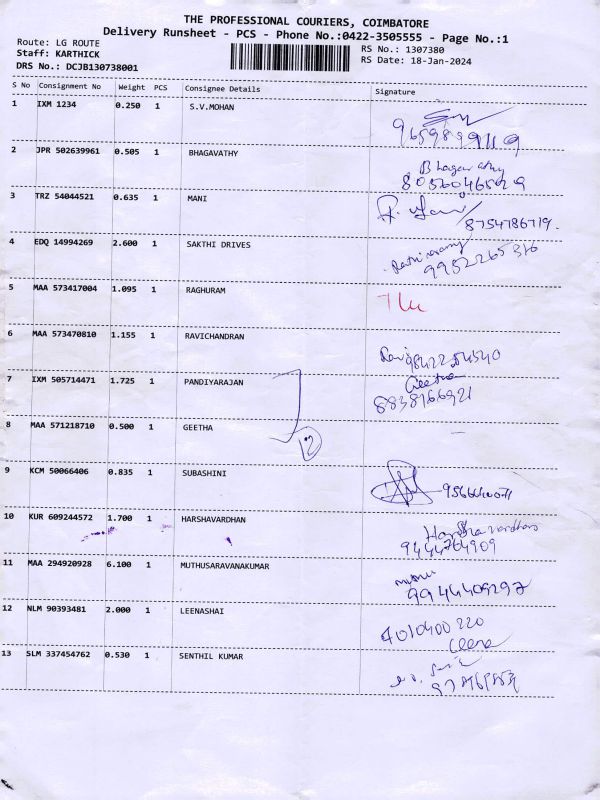 THE PROFESSIONAL COURIERS, COIMBATORE
Delivery Runsheet - PCS - Phone No.:0422-3505555 - Page No.:1
Route: LG ROUTE
Staff: KARTHICK
DRS No.: DCJB130738001
RS No.: 1307380
RS Date: 18-Jan-2024
S No Consignment No Weight PCS Consignee Details Signature
1 IXM 1234 0.250 1 S.V.MOHAN
9659899119
2 JPR 502639961 0.505 1 BHAGAVATHY
Bhagavathy
8056046529
3 TRZ 54044521 0.635 1 MANI
8754786719.
4 EDQ 14994269 2.600 1 SAKTHI DRIVES
9952265316
5 MAA 573417004 1.095 1 RAGHURAM
6 MAA 573470810 1.155 1 RAVICHANDRAN
Ravi
7 IXM 505714471 1.725 1 PANDIYARAJAN
Geetha
8838166921
8 MAA 571218710 0.500 1 GEETHA
2
9 KCM 50066406 0.835 1 SUBASHINI
10 KUR 609244572 1.700 1 HARSHAVARDHAN
Harshavardhan
9444764909
11 MAA 294920928 6.100 1 MUTHUSARAVANAKUMAR
9944409297
12 NLM 90393481 2.000 1 LEENASHAI
4010400 220
Leena
13 SLM 337454762 0.530 1 SENTHIL KUMAR